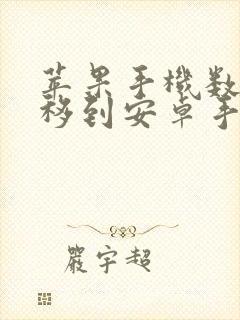 苹果手機数
移到安卓手
嚴宇超